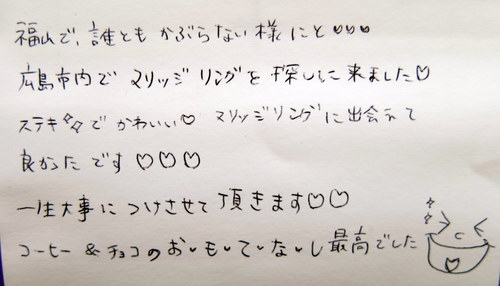 福山で、誰とも かぶらない 様 にと♡♡♡
広島市内で マリッジ リングを 探しに 来ました♡
ステキ✨で かわいい♡ マリッジリングに 出会えて
良かったです♡♡♡
一生大事に つけさせて 頂きます♡♡
コーヒー & チョコの お・も・て・な・し 最高でした